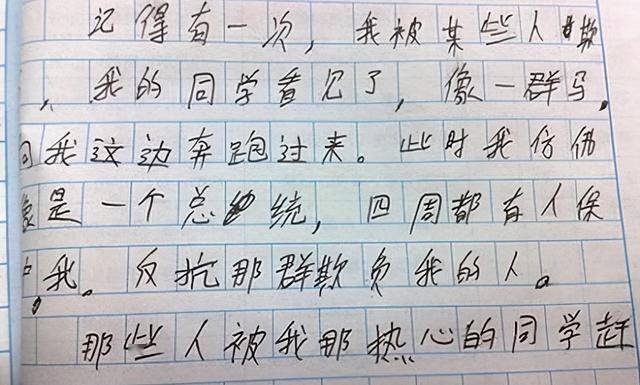 记得有一次，我被某些人欺
，我的同学看见了，像一群马，
向我这边奔跑过来。此时我仿佛
像是一个总统，四周都有人保
我。反抗那群欺负我的人。
那些人被我那热心的同学赶